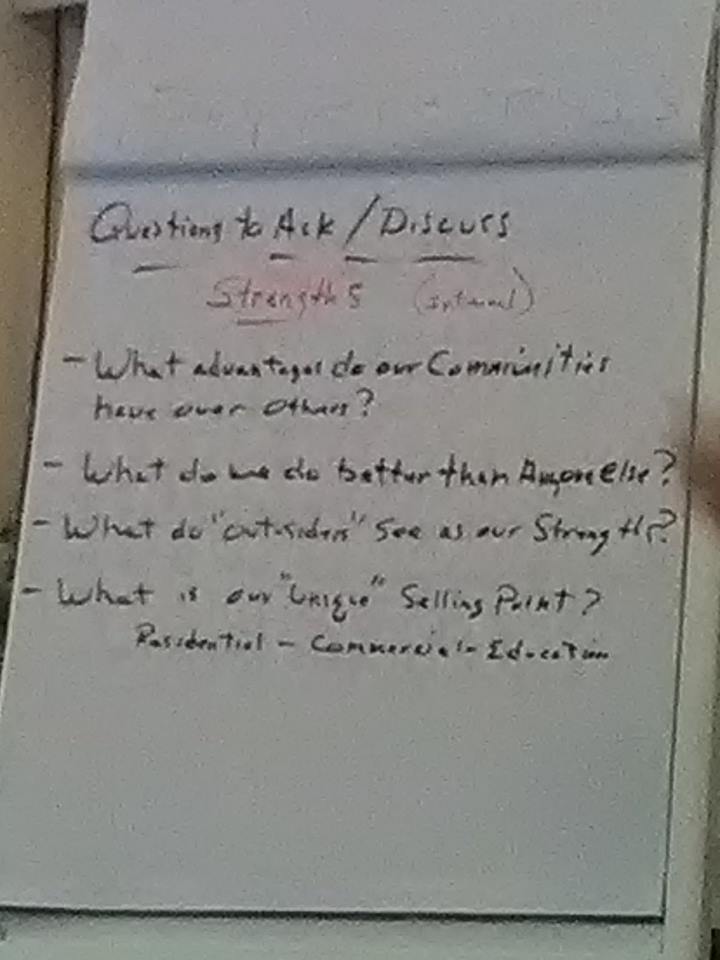 Questions to Ask / Discuss
Strengths (internal)
- What advantages do our Communities
have over others?
- What do we do better than Anyone else?
- What do "outsiders" see as our Strengths?
- What is our "Unique" Selling Point?
Residential - Commercial - Education